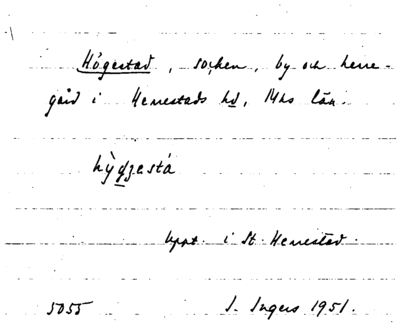 Högestad, socken, by och herre-
gård i Herrestads hd, Mhs län.
hỳgestá
Uppt. i St. Herrestad.
5055 I. Ingers 1951.